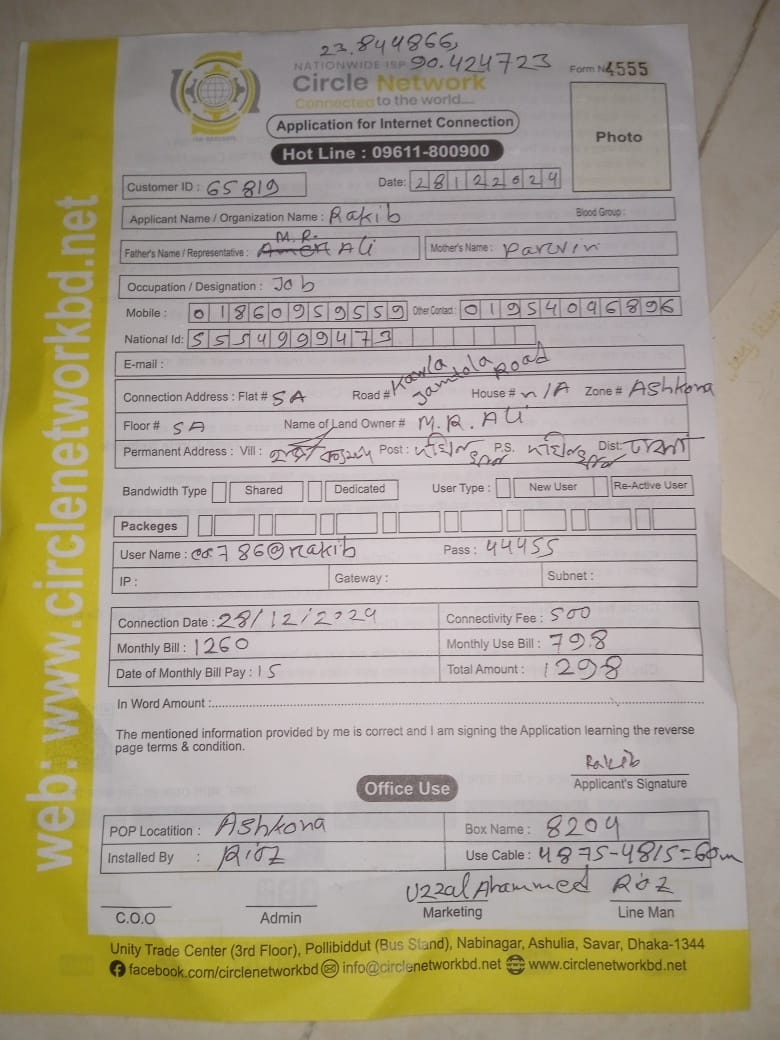 23.844866,
NATIONWIDE ISP 90.424723
Form No 4555
Circle Network
Connected to the world....
Application for Internet Connection
Photo
Hot Line : 09611-800900
Customer ID : 65819 Date: 28122024
Applicant Name / Organization Name : Rakib Blood Group :
Father's Name / Representative : M.R. Ali Mother's Name : Parvin
Occupation / Designation : Job
Mobile : 01860959559 Other Contact : 01954096896
National Id: 5554999473
E-mail :
Connection Address : Flat # 5A Road # Kawla Jamtola Road House # n/A Zone # Ashkona
Floor # 5A Name of Land Owner # M.R. Ali
Permanent Address : Vill : Post : P.S. Dist: ঢাকা
Bandwidth Type Shared Dedicated User Type : New User Re-Active User
Packeges
User Name : cc786@rakib Pass : 44455
IP : Gateway : Subnet :
Connection Date : 28/12/2024 Connectivity Fee : 500
Monthly Bill : 1260 Monthly Use Bill : 798
Date of Monthly Bill Pay : 15 Total Amount : 1298
In Word Amount :
The mentioned information provided by me is correct and I am signing the Application learning the reverse
page terms & condition.
Rakib
Applicant's Signature
Office Use
POP Locatition : Ashkona Box Name : 8204
Installed By : Rioz Use Cable : 4875-4815=60m
Uzzal Ahammed Roz
C.O.O Admin Marketing Line Man
Unity Trade Center (3rd Floor), Pollibiddut (Bus Stand), Nabinagar, Ashulia, Savar, Dhaka-1344
facebook.com/circlenetworkbd info@circlenetworkbd.net www.circlenetworkbd.net
web: www.circlenetworkbd.net